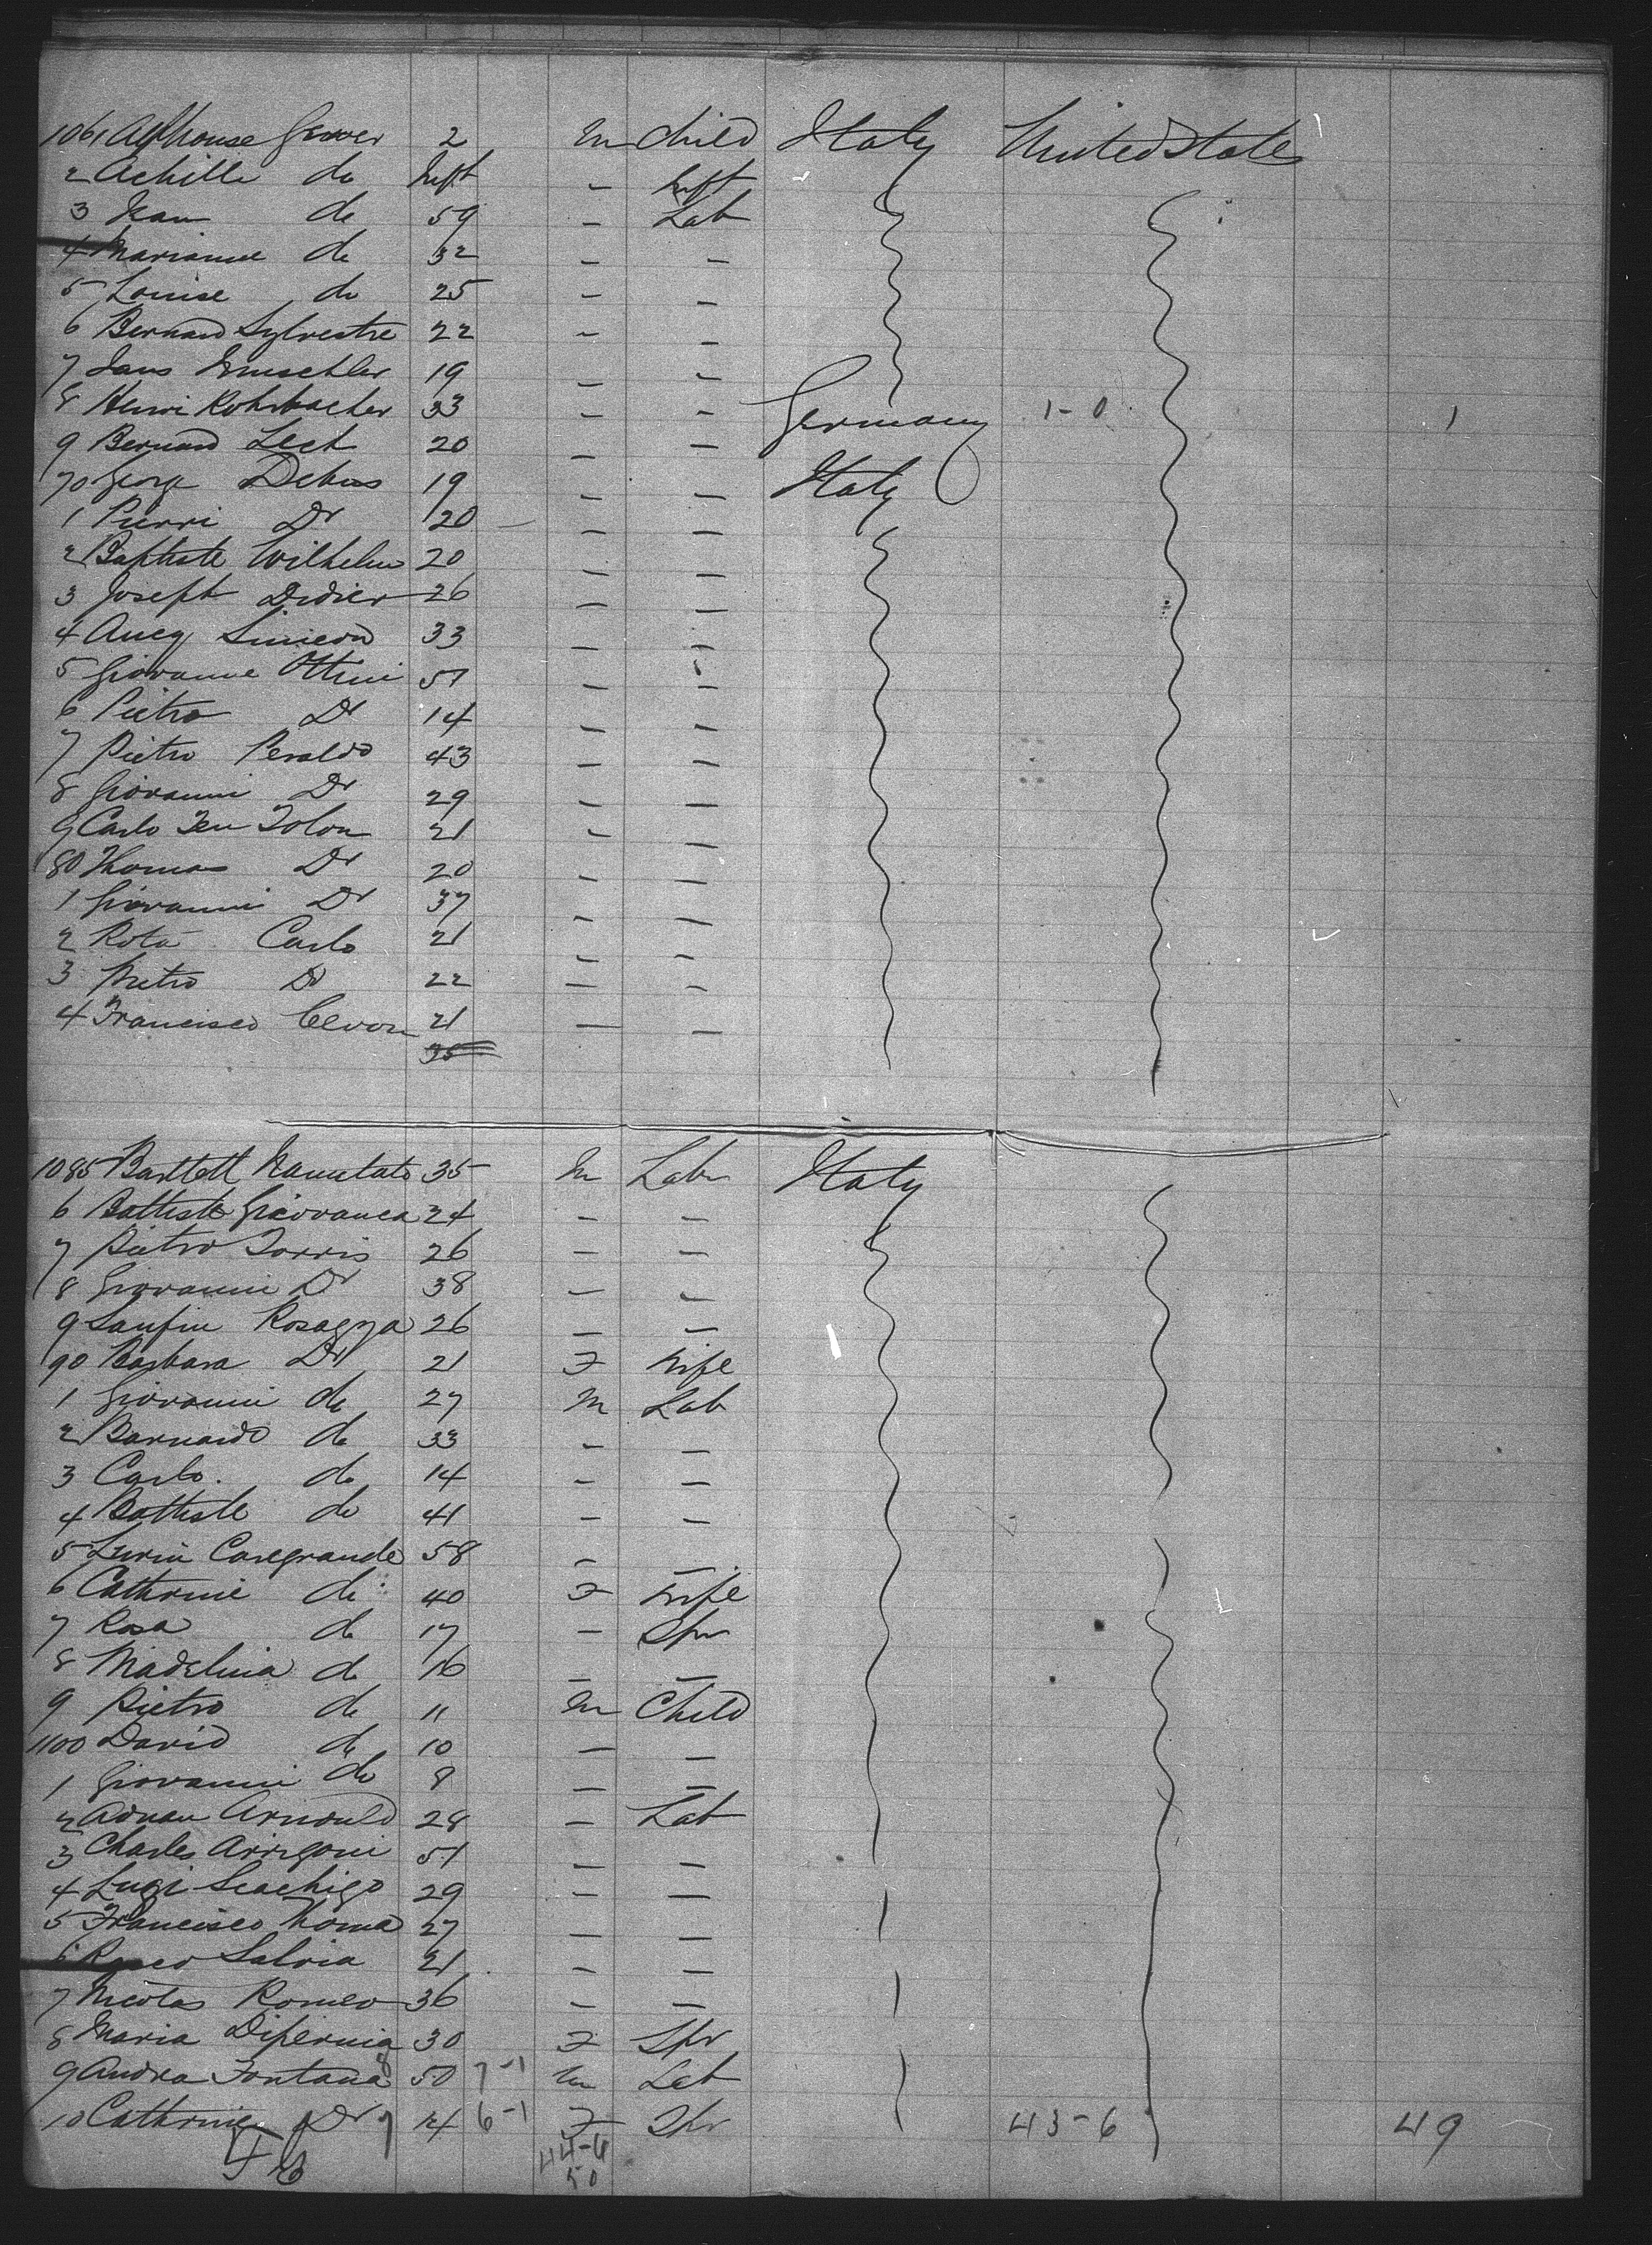 1061 Alphonse Grover 2 m child Italy United States
2 Achille do Inft - Inft
3 Jean do 59 - Lab
4 Marianne do 32 - -
5 Louise do 25 - -
6 Bernard Sylvestre 22 - -
7 19 - -
8 Henri Rohrbacher 33 - - Germany 1-0 1
9 Bernard Lech 20 - -
70 Georg Debus 19 - - Italy
1 Pierri Do 20 - -
2 Baptiste Wilhelm 20 - -
3 Joseph Didier 26 - -
4 Simeon 33 - -
5 Giovanne Ottini 51 - -
6 Pietro Do 14 - -
7 Pietro Peraldo 43 - -
8 Giovanni Do 29 - -
9 Carlo 21 - -
80 Thomas Do 20 - -
1 Giovanni Do 37 - -
2 Rota Carlo 21 - -
3 Pietro Do 22 - -
4 Francisco 21 - -
35
1085 Bartlett 35 m Labr Italy
6 Battiste 24 - -
7 Pietro Torris 26 - -
8 Giovanni Do 38 - -
9 Rosazza 26 - -
90 Barbara Do 21 F wife
1 Giovanni do 27 m Lab
2 Barnardo do 33 - -
3 Carlo. do 14 - -
4 Battiste do 41 - -
5 Casegrande 58 - -
6 Cathrine do 40 F wife
7 Rosa do 17 - Spr
8 Madelina do 16 - -
9 Pietro do 11 m Child
1100 David do 10 - -
1 Giovanni do 8 - -
2 Adnan Arnould 28 - Lab
3 Charles Arrigoni 51 - -
4 Luigi Scachigo 29 - -
5 Francisco Thoma 27 - -
6 Rocco Salvia 21 - -
7 Nicolas Romeo 36 - -
8 Maria Dipernia 30 F Spr
9 Andrea Fontana 50 7-1 m Lab
10 Cathrine Do 14 6-1 F Spr 43-6 49
44-6
50